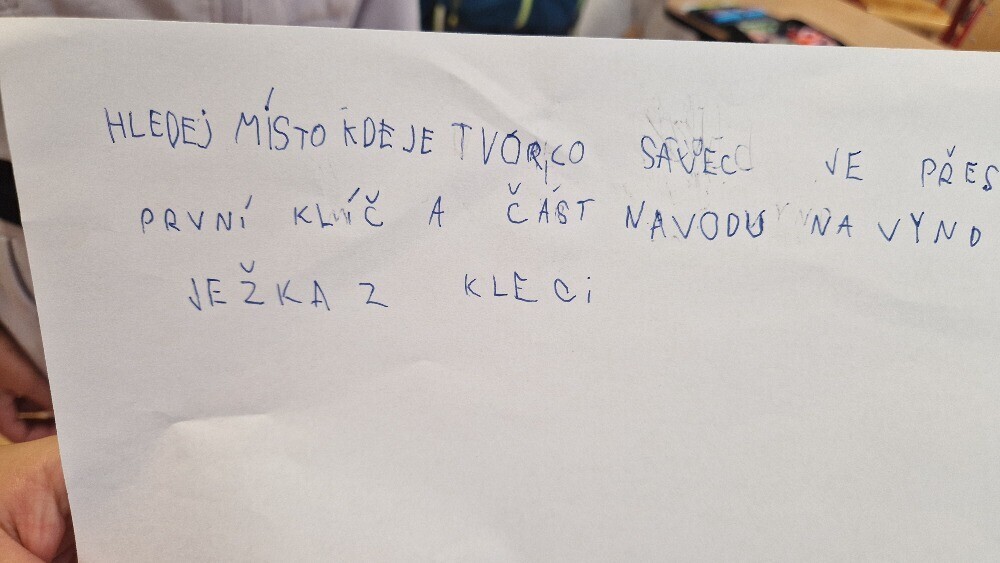 HLEDEJ MÍSTO KDE JE TVOR, CO SAVEC VE PŘES
PRVNÍ KLÍČ A ČÁST NAVODU NA VYND
JEŽKA Z KLECI